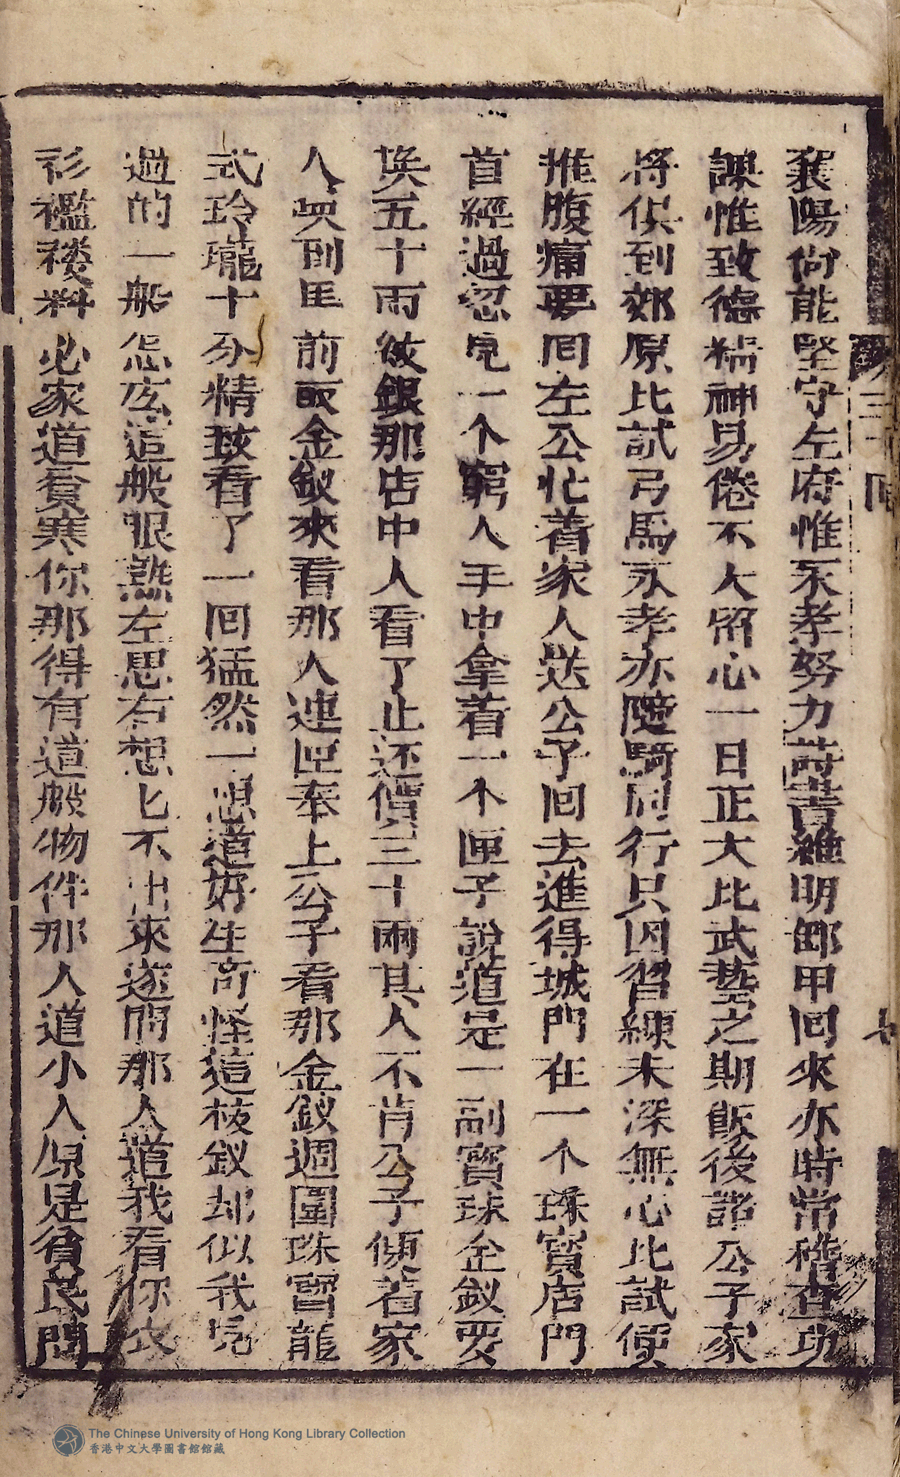 襄陽尙能堅守左府惟永孝努力詩書維明鄉甲回來亦時常稽查功
課惟致德精神易倦不大留心一日正大比武藝之期飯後諸公子家
將俱到郊原比試弓馬永孝亦隨騎同行只因習練未深無心比試便
推腹痛要囘左公忙着家人送公子回去進得城門在一个珠寳店門
首經過忽見一个窮人手中拿着一个匣子說道是一副寳珠金釵要
換五十兩紋銀那店中人看了止还價三十兩其人不肯公子傾着家
人喚到匣前取金釵來看那人連匣奉上公子看那金釵週圍珠寳龍
式玲瓏十分精致看了一囘猛然一想道好生奇怪這枝釵却似我見
過的一般怎広這般眼熟左思右想匕不出來遂問那人道我看你衣
衫襤褸料必家道貧寒你那得有這般物件那人道小人原是貧民間
三十囘
七
The Chinese University of Hong Kong Library Collection
香港中文大學圖書館館藏